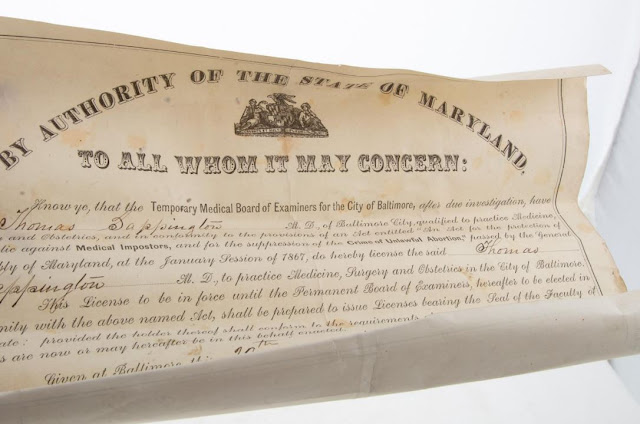 BY AUTHORITY OF THE STATE OF MARYLAND,
TO ALL WHOM IT MAY CONCERN:
Know ye, that the Temporary Medical Board of Examiners for the City of Baltimore, after due investigation, have
Thomas Sappington M. D., of Baltimore City, qualified to practice Medicine,
and Obstetrics, and in conformity to the provisions of an Act entitled "An Act for the protection of
against Medical Impostors, and for the suppression of the Crime of Unlawful Abortion," passed by the General
of Maryland, at the January Session of 1867, do hereby license the said Thomas
M. D., to practice Medicine, Surgery and Obstetrics in the City of Baltimore.
This License to be in force until the Permanent Board of Examiners, hereafter to be elected in
with the above named Act, shall be prepared to issue Licenses bearing the Seal of the Faculty of
provided the holder thereof shall conform to the requirements
are now or may hereafter be in this behalf enacted
Given at Baltimore this 20th